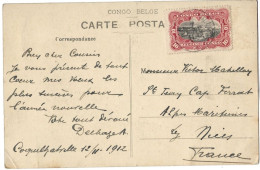 CONGO BELGE
CARTE POSTA
Correspondance
Bien cher Cousin
Je vous présente de tout
Coeur mes voeux les
plus sincères pour
l'année nouvelle
Votre tout dévoué
Coquilhatville 12/11 1912
Monsieur Victor
St Jean Cap Ferrat
Alpes Maritimes
Nice
France